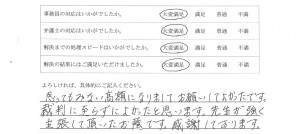 事務員の対応はいかがでしたか。 大変満足 満足 普通 不満
弁護士の対応はいかがでしたか。 大変満足 満足 普通 不満
解決までの処理スピードはいかがでしたか。 大変満足 満足 普通 不満
解決の結果にはご満足いただけましたか。 大変満足 満足 普通 不満
よろしければ、具体的にご記入ください。
思ってもみない高額になりましてお願いしてよかったです。
裁判に至らずによかったと思います。先生が強く
主張して頂いたお蔭です。感謝しております。